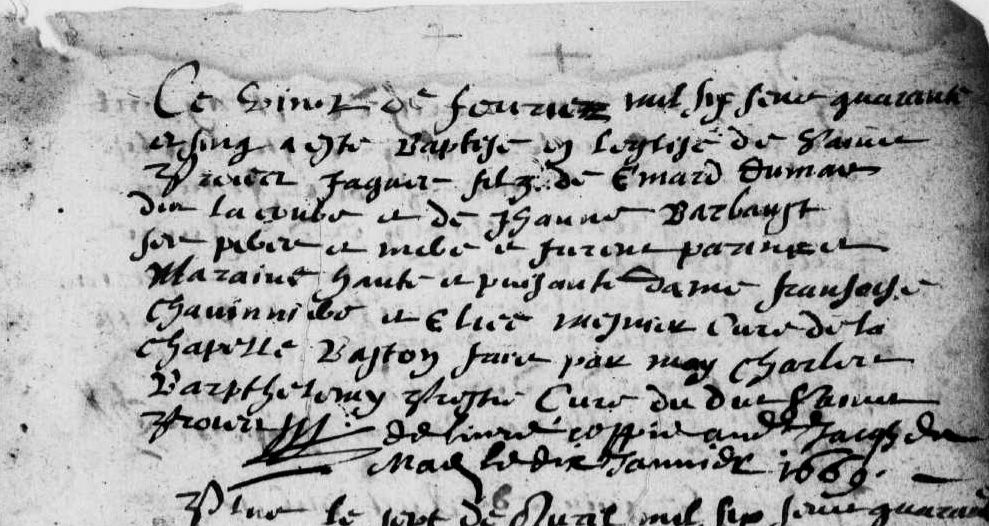 Ce vint de feuvrier mil six sens quarante
et sinq a este Baptisé en leglise de Saint
Projet Jaques filz de Emard Dumas
dit lacoube et de Jhanne Barbaust
ses pere et mere et furent parain et
Maraine haute et puisante dame fransoise
et Eliee mesnier Cure de la
Chapelle Baston fait par moy Charles
Barpthelemy Prestre Cure du dit Saint
Projet
delivré coppie audt Jacqs du
Mas le dix Janvier 1669.
Plus le sept de Avril mil six sens quarante